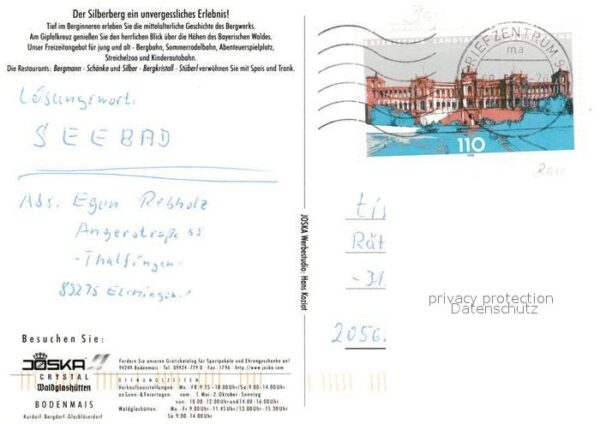 Der Silberberg ein unvergessliches Erlebnis!
Tief im Berginneren erleben Sie die mittelalterliche Geschichte des Bergwerks.
Am Gipfelkreuz genießen Sie den herrlichen Blick über die Höhen des Bayerischen Waldes.
Unser Freizeitangebot für jung und alt - Bergbahn, Sommerrodelbahn, Abenteuerspielplatz,
Streichelzoo und Kinderautobahn.
Die Restaurants: Bergmann - Schänke und Silber - Bergkristall - Stüberl verwöhnen Sie mit Speis und Trank.
Lösungswort:
SEEBAD
Abs. Egon Rebholz
Angerstraße 55
-Thalfingen-
Bay
BRIEFZENTRUM
ma
110
JOSKA Werbestudio: Hans Koziat
Rät
-31.
2056.
privacy protection
Datenschutz
Besuchen Sie:
JOSKA
CRYSTAL
Waldglashütten
BODENMAIS
Kurdorf·Bergdorf·Glasbläserdorf
Fordern Sie unseren Gratiskatalog für Sportpokale und Ehrengeschenke an!
94249 Bodenmais Tel. 09924-779 0 Fax. 1796 - http://www.joska.com
ÖFFNUNGSZEITEN
Verkaufsausstellungen: Mo.-FR 9.15-18.00 Uhr/Sa 9.00-14.00 Uhr
an Sonn-& Feiertagen: vom 1. Mai-2. Oktober-Sonntag
von: 10.00-12.00 und 14.00-16.00 Uhr
Waldglashütten: Mo.-Fr 9.00 Uhr-11.45 Uhr/13.00 Uhr-15.30 Uhr
Sa 9.00-14.00 Uhr